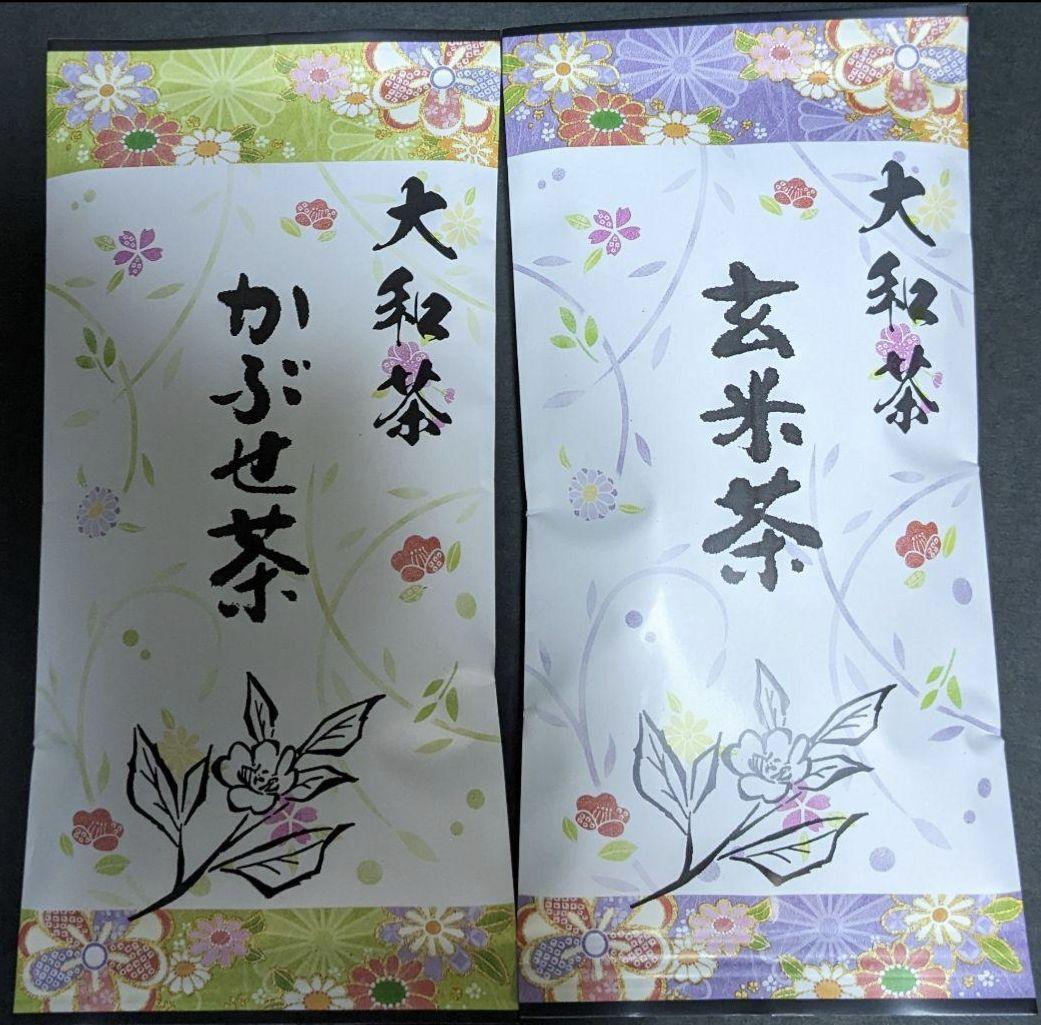 大和茶
かぶせ茶
大和茶
玄米茶